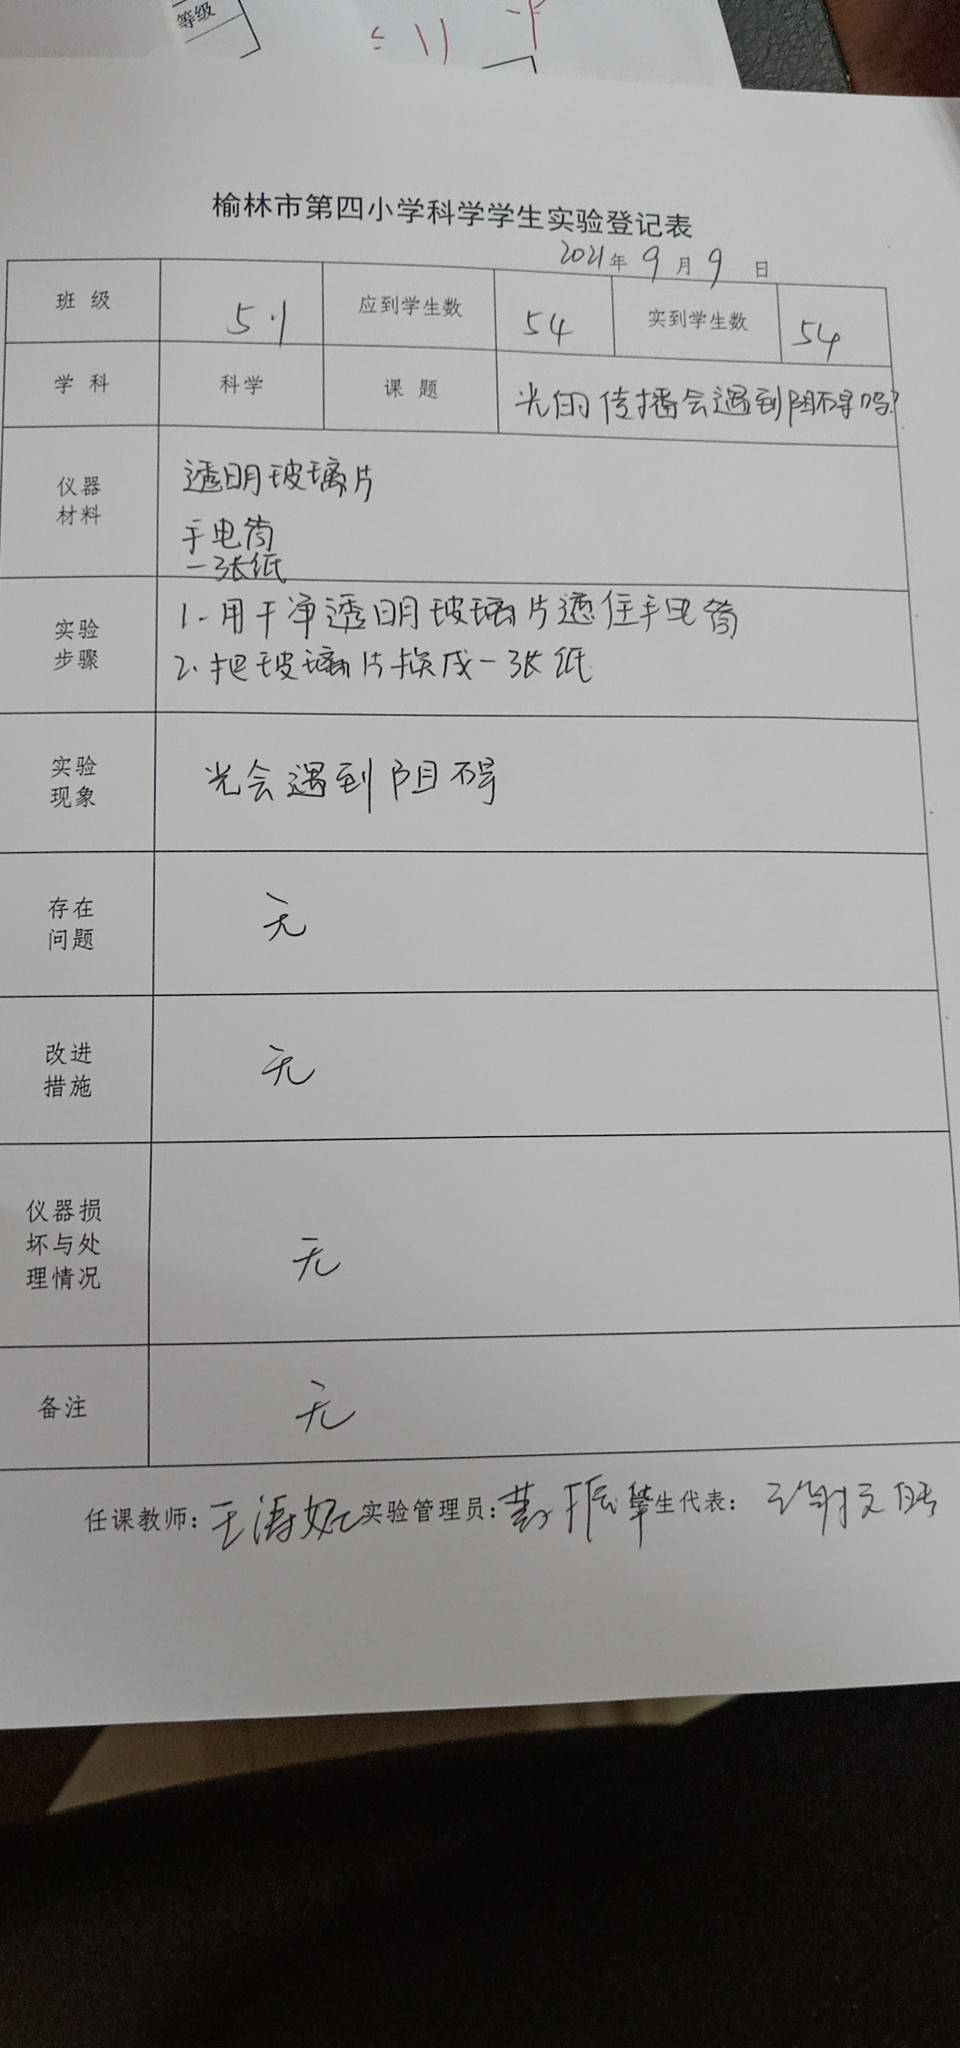 等级
榆林市第四小学科学学生实验登记表
2021年 9 月 9 日
班 级 5.1 应到学生数 54 实到学生数 54
学 科 科学 课 题 光的传播会遇到阻碍吗?
仪器
材料
透明玻璃片
手电筒
一张纸
实验
步骤
1.用干净透明玻璃片遮住手电筒
2.把玻璃片换成一张纸
实验
现象
光会遇到阻碍
存在
问题
无
改进
措施
无
仪器损
坏与处
理情况
无
备注
无
任课教师: 实验管理员: 学生代表: